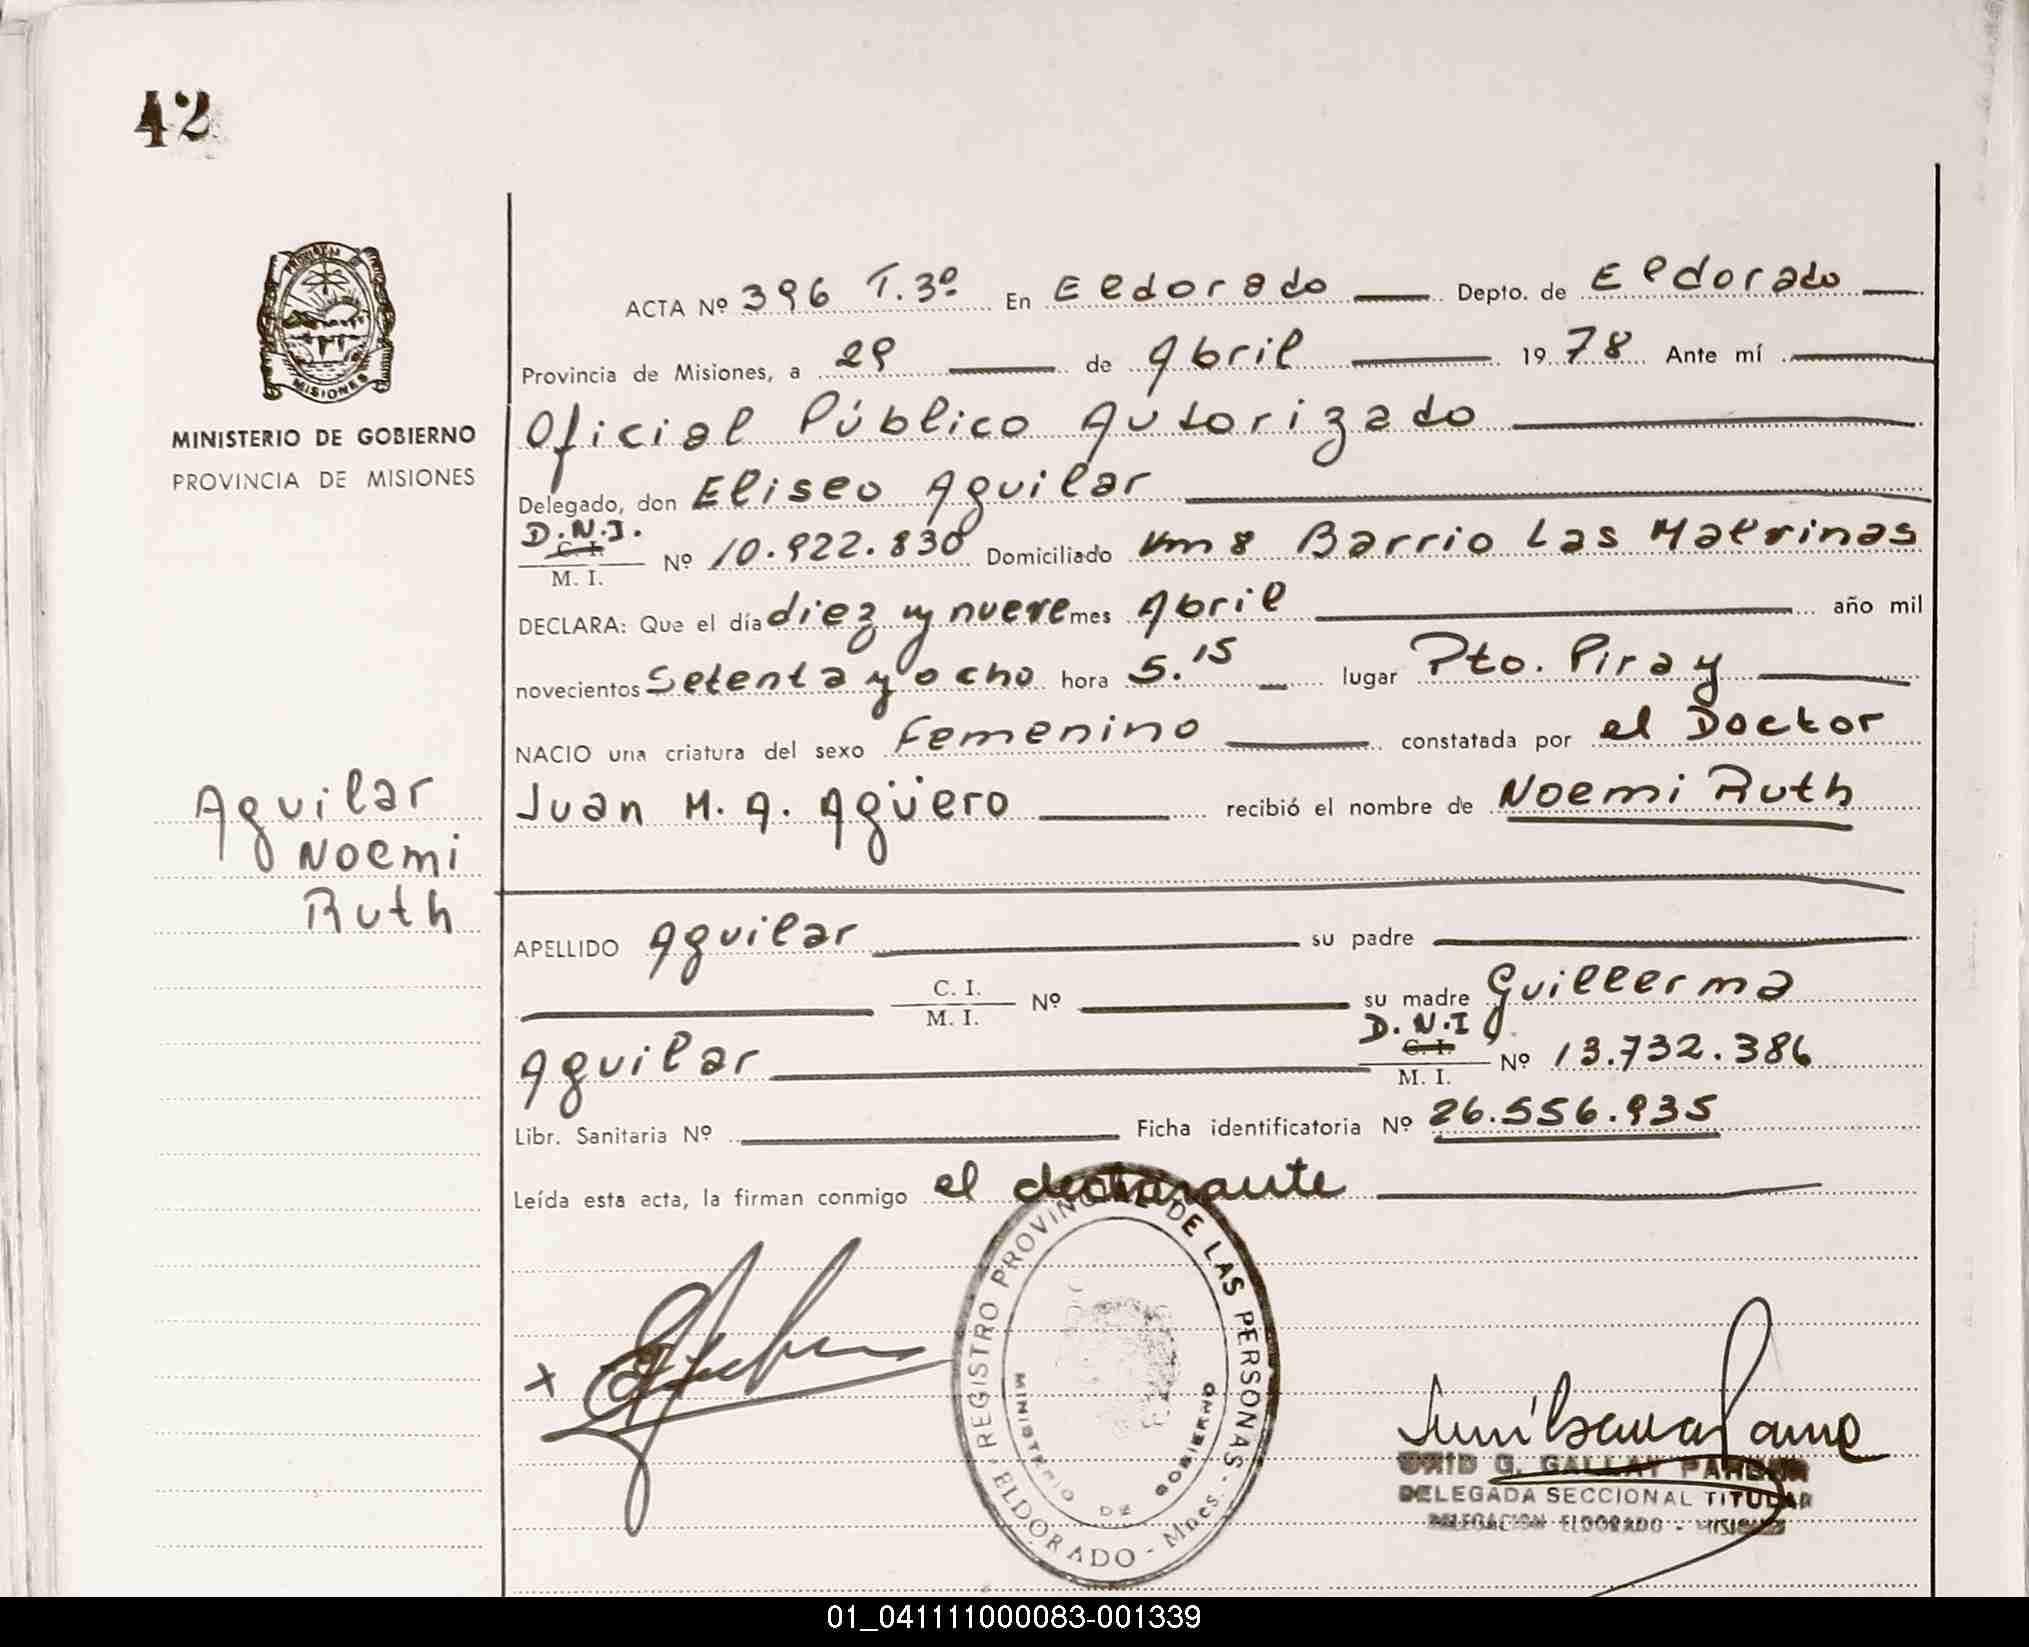 42
MISIONES
MINISTERIO DE GOBIERNO
PROVINCIA DE MISIONES
ACTA Nº 396 T.3º En Eldorado Depto. de Eldorado
Provincia de Misiones, a 29 de Abril 1978 Ante mí
Oficial Público Autorizado
Delegado, don Eliseo Aguilar
D.N.I.
C. I.
M. I. Nº 10.922.830 Domiciliado Km 8 Barrio Las Malvinas
DECLARA: Que el día diez y nueve mes Abril año mil
novecientos Setenta y ocho hora 5.15 lugar Pto. Piray
NACIO una criatura del sexo Femenino constatada por el Doctor
Juan M. A. Agüero recibió el nombre de Noemi Ruth
Aguilar
Noemi
Ruth
APELLIDO Aguilar su padre
C. I.
M. I. Nº su madre Guillerma
Aguilar D.N.I
C. I.
M. I. Nº 13.732.386
Libr. Sanitaria Nº Ficha identificatoria Nº 26.556.935
Leída esta acta, la firman conmigo el declarante
REGISTRO PROVINCIAL DE LAS PERSONAS
MINISTERIO DE GOBIERNO
ELDORADO - Mnes.
x
G. GALLAY
DELEGADA SECCIONAL TITULAR
DELEGACION ELDORADO - MISIONES
01_041111000083-001339